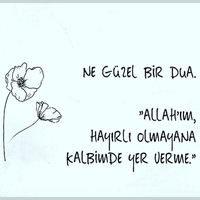 NE GÜZEL BİR DUA.
"ALLAH'IM,
HAYIRLI OLMAYANA
KALBİMDE YER VERME."